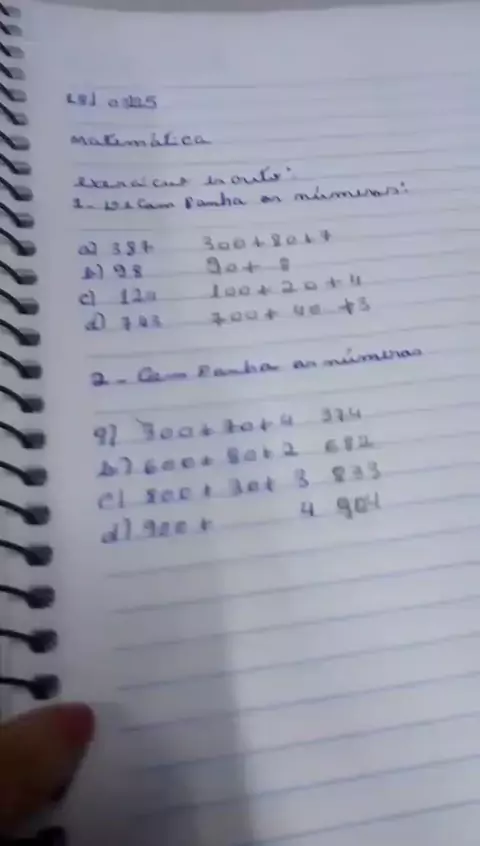 Matemática
os números:
a) 387 300+80+7
b) 98 90+8
c) 124 100+20+4
d) 743 700+40+3
2- Componha os números
a) 300+70+4 374
b) 600+80+2 682
c) 800+30+3 833
d) 900+ 4 904